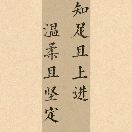 知足且上进
温柔且坚定